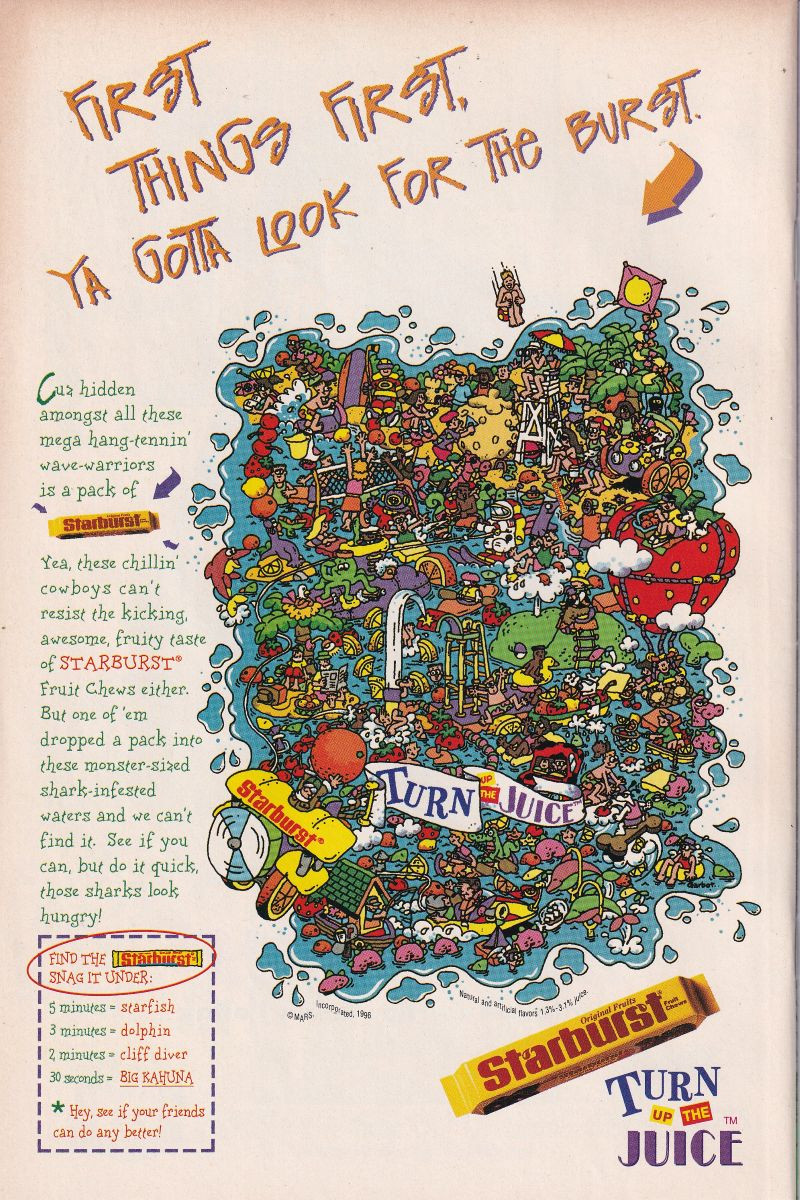 FIRST
THINGS FIRST,
YA GOTTA LOOK FOR THE BURST.
Cuz hidden
amongst all these
mega hang-tennin'
wave-warriors
is a pack of
Starburst
Yea, these chillin'
cowboys can't
resist the kicking,
awesome, fruity taste
of STARBURST®
Fruit Chews either.
But one of 'em
dropped a pack into
these monster-sized
shark-infested
waters and we can't
find it. See if you
can, but do it quick,
those sharks look
hungry!
Starburst®
TURN UP THE JUICE™
Garbot.
FIND THE Starburst
SNAG IT UNDER:
5 minutes = starfish
3 minutes = dolphin
2 minutes = cliff diver
30 seconds = BIG KAHUNA
* Hey, see if your friends
can do any better!
©MARS, Incorporated, 1996
Natural and artificial flavors 1.3%-3.1% juice.
Original Fruits
Starburst®
Fruit
Chews
TURN
UP THE
JUICE™